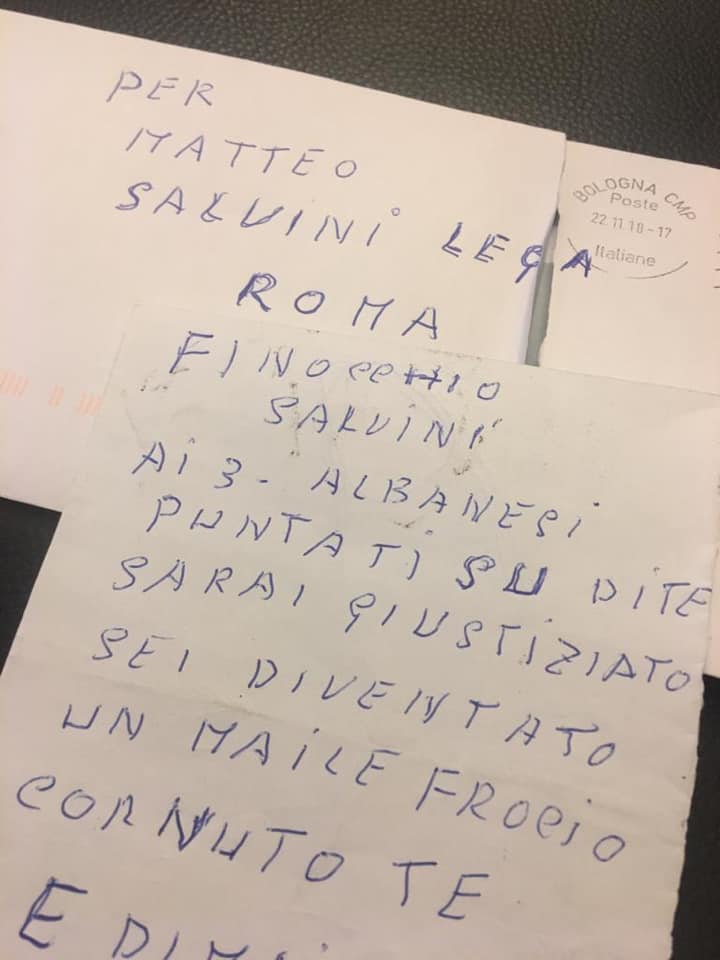 PER
MATTEO
SALVINI LEGA
ROMA
BOLOGNA CMP
Poste
22.11.18-17
Italiane
FINOCCHIO
SALVINI
AI 3- ALBANESI
PUNTATI SU DITE
SARAI GIUSTIZIATO
SEI DIVENTATO
UN MAILE FROCIO
CORNUTO TE
E